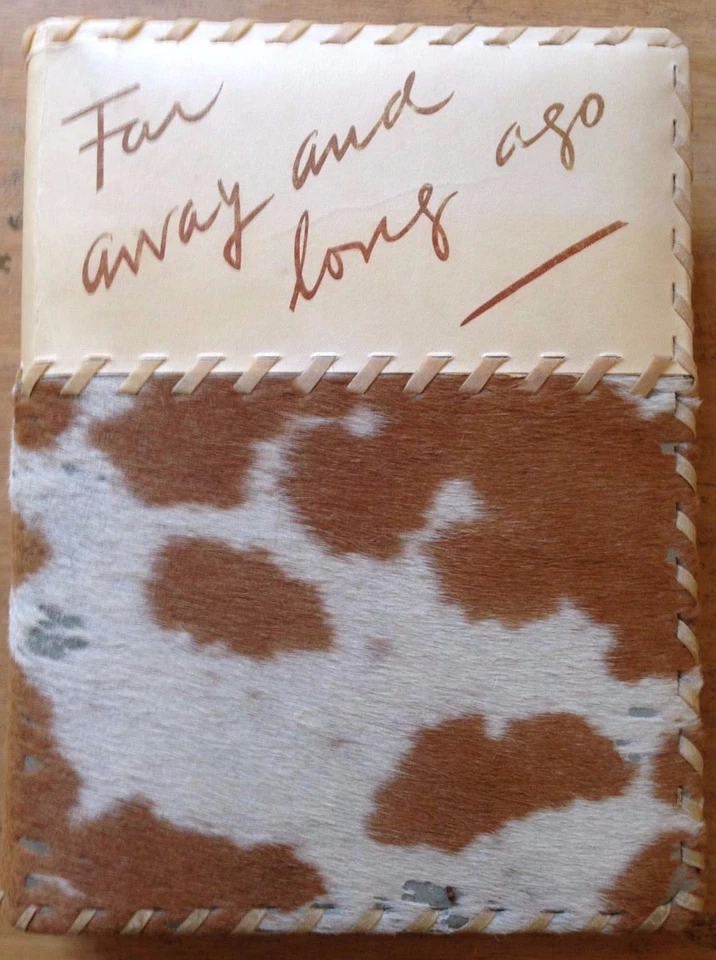 Far
away and
long ago